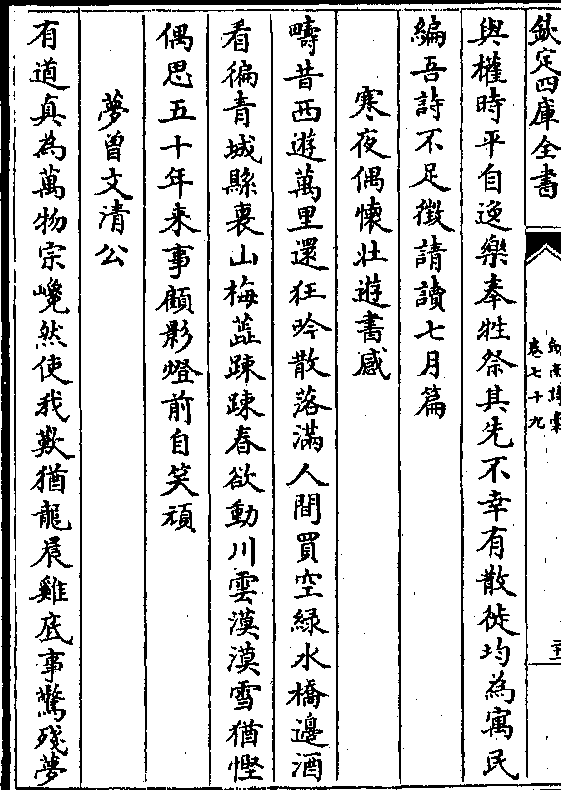 欽定四庫全書
劍南詩藁
卷七十九
與權時平自逸樂奉牲祭其先不幸有散徙均為寓民
編吾詩不足徵請讀七月篇
寒夜偶懷壯遊書感
疇昔西遊萬里還狂吟散落滿人間買空綠水橋邊酒
看徧青城縣裏山梅蘂踈踈春欲動川雲漠漠雪猶慳
偶思五十年来事顧影燈前自笑頑
夢曾文清公
有道真為萬物宗巉然使我歎猶龍晨雞底事驚殘夢